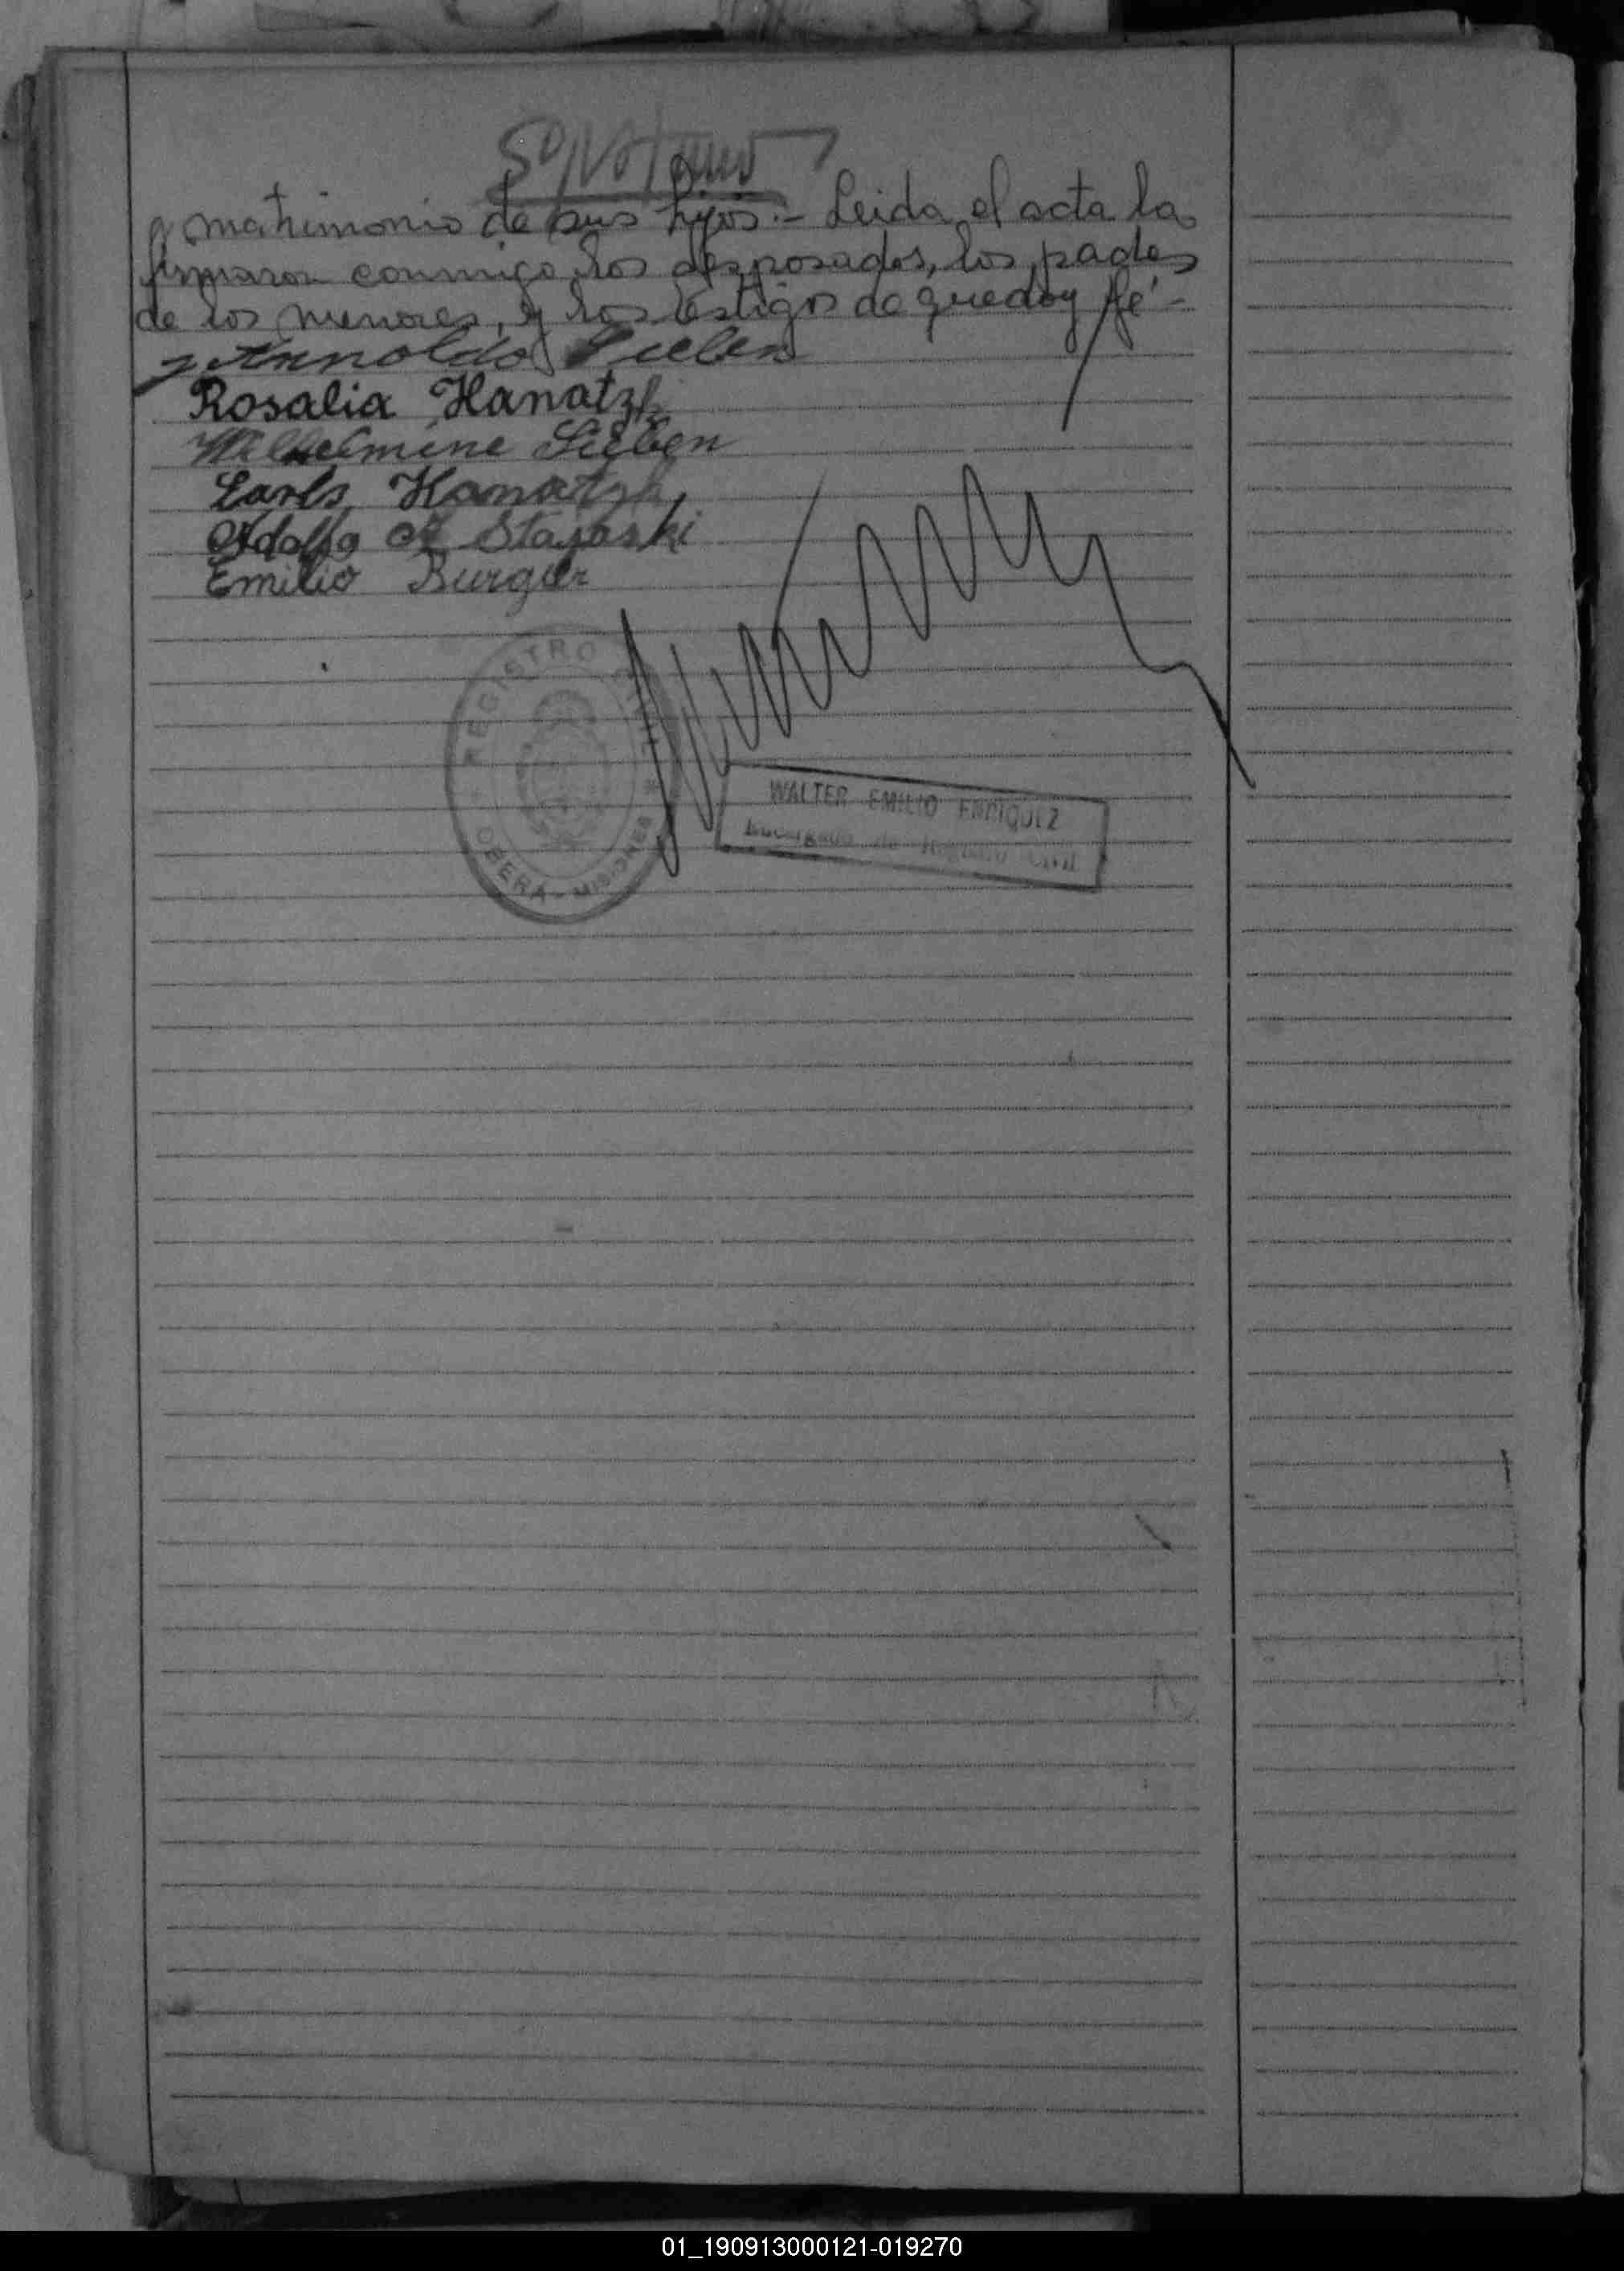 S/Notano
matrimonio de sus hijos.- Leida el acta la
firmaron conmigo los desposados, los padres
de los menores, y los testigos de que doy fé.-
Arnoldo Sieben
Rosalia Hanatzk
Wilhelmine Sieben
Carls Hanatzk
Adolfo A Stasaski
Emilio Burger
REGISTRO CIVIL
OBERA - MISIONES
WALTER EMILIO ENRIQUEZ
Encargado de Registro Civil
01_190913000121-019270